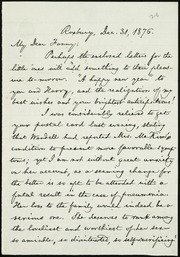 Roxbury, Dec. 31, 1876.
My Dear Fanny:
Perhaps the enclosed letter for the
little one will add something to their pleas-
ure to-morrow. "A happy new year" to
you and Harry, and the realization of my
best wishes and your brightest anticipations!
I was considerably relieved to get
your postal card last evening, stating
that Wendell had reported Mrs. McKim's
condition to present more favorable symp-
toms; yet I am not without great anxiety
on her account, as a seeming change for
the better is so apt to be attended with a
fatal result in the case of pneumonia.
Her loss to the family would indeed be a
serious one. She deserves to rank among
the loveliest and worthiest of her sex—
so amiable, so disinterested, so self-sacrificing!